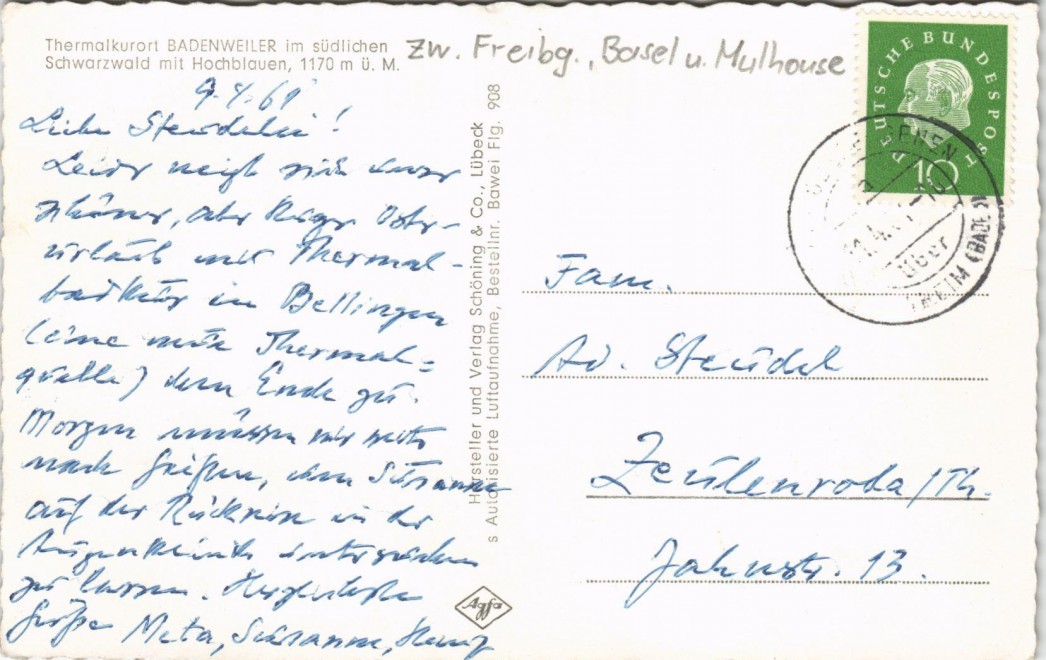 Thermalkurort BADENWEILER im südlichen
Schwarzwald mit Hochblauen, 1170 m ü. M.
zw. Freibg., Basel u. Mulhouse
9.4.61
Liebe Steudelei!
Leider neigt sich unser
schöner, aber kurzer Oster-
urlaub mit Thermal-
badkur in Bellingen
(eine neue Thermal-
quelle) dem Ende zu.
Morgen müssen wir weiter
nach Gießen, um Susanne
auf der Rückreise in der
Augenklinik untersuchen
zu lassen. Herzlichste
Grüße Meta, Susanne,
Hersteller und Verlag Schöning & Co., Lübeck
s Autorisierte Luftaufnahme, Bestellnr. Bawei Flg. 908
Agfa
DEUTSCHE BUNDESPOST
10
über
HEIM (BADEN)
Fam.
Ad. Steudel
Zeulenroda/Th.
Jahnstr. 13.